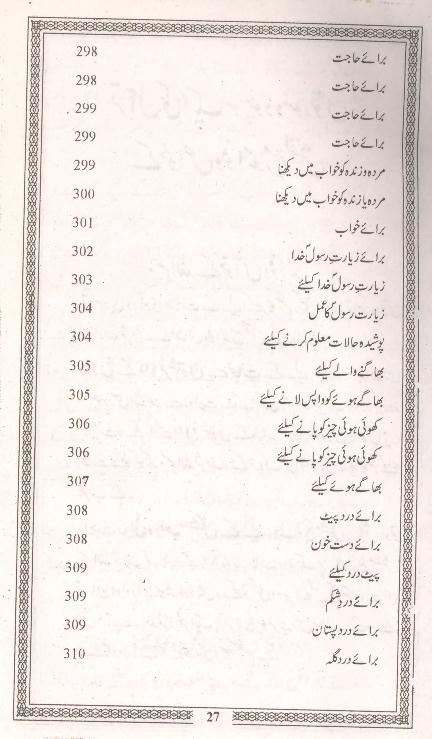 برائے حاجت 298
برائے حاجت 298
برائے حاجت 299
برائے حاجت 299
مردہ و زندہ کو خواب میں دیکھنا 299
مردہ یا زندہ کو خواب میں دیکھنا 300
برائے خواب 301
برائے زیارت رسولؐ خدا 302
زیارت رسولؐ خدا کیلئے 303
زیارت رسولؐ کا عمل 304
پوشیدہ حالات معلوم کرنے کیلئے 304
بھاگنے والے کیلئے 305
بھاگے ہوئے کو واپس لانے کیلئے 305
کھوئی ہوئی چیز کو پانے کیلئے 306
کھوئی ہوئی چیز کو پانے کیلئے 306
بھاگے ہوئے کیلئے 307
برائے درد پیٹ 308
برائے دست خون 308
پیٹ درد کیلئے 309
برائے درد شکم 309
برائے درد پستان 309
برائے درد گلہ 310
27